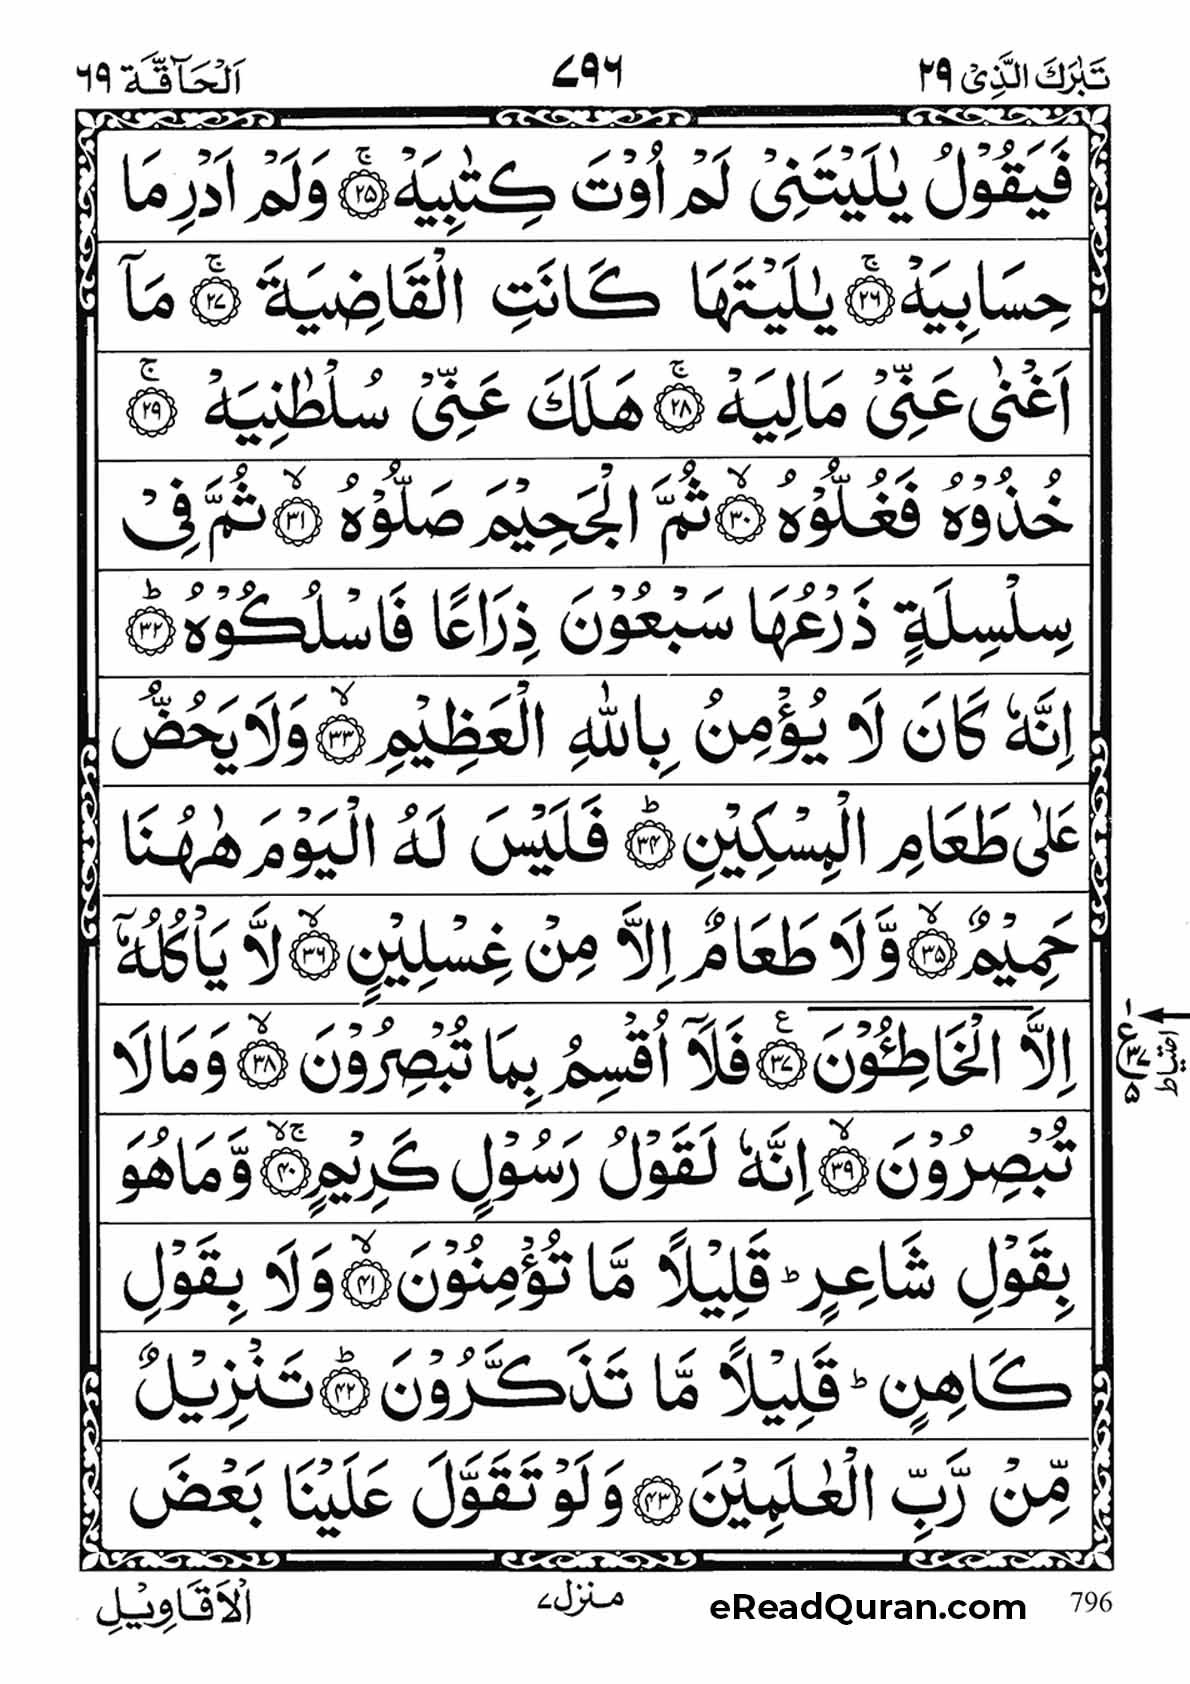 تَبٰرَكَ الَّذِیْ ۲۹ ۷۹۶ اَلْحَآقَّة ۶۹
فَیَقُوْلُ یٰلَیْتَنِیْ لَمْ اُوْتَ كِتٰبِیَهْ ۚ﴿۲۵﴾ وَلَمْ اَدْرِ مَا
حِسَابِیَهْ ۚ﴿۲۶﴾ یٰلَیْتَهَا كَانَتِ الْقَاضِیَةَ ۚ﴿۲۷﴾ مَاۤ
اَغْنٰی عَنِّیْ مَالِیَهْ ۚ﴿۲۸﴾ هَلَكَ عَنِّیْ سُلْطٰنِیَهْ ۚ﴿۲۹﴾
خُذُوْهُ فَغُلُّوْهُ ۙ﴿۳۰﴾ ثُمَّ الْجَحِیْمَ صَلُّوْهُ ۙ﴿۳۱﴾ ثُمَّ فِیْ
سِلْسِلَةٍ ذَرْعُهَا سَبْعُوْنَ ذِرَاعًا فَاسْلُكُوْهُ ؕ﴿۳۲﴾
اِنَّهٗ كَانَ لَا یُؤْمِنُ بِاللّٰهِ الْعَظِیْمِ ۙ﴿۳۳﴾ وَلَا یَحُضُّ
عَلٰی طَعَامِ الْمِسْكِیْنِ ؕ﴿۳۴﴾ فَلَیْسَ لَهُ الْیَوْمَ هٰهُنَا
حَمِیْمٌ ۙ﴿۳۵﴾ وَّلَا طَعَامٌ اِلَّا مِنْ غِسْلِیْنٍ ۙ﴿۳۶﴾ لَّا یَاْكُلُهٗۤ
اِلَّا الْخَاطِـُٔوْنَ ۧ﴿۳۷﴾ فَلَاۤ اُقْسِمُ بِمَا تُبْصِرُوْنَ ۙ﴿۳۸﴾ وَمَا لَا
۱ ع ۳۷ ۵ احتیاط
تُبْصِرُوْنَ ۙ﴿۳۹﴾ اِنَّهٗ لَقَوْلُ رَسُوْلٍ كَرِیْمٍ ۚۙ﴿۴۰﴾ وَّمَا هُوَ
بِقَوْلِ شَاعِرٍ ؕ قَلِیْلًا مَّا تُؤْمِنُوْنَ ۙ﴿۴۱﴾ وَلَا بِقَوْلِ
كَاهِنٍ ؕ قَلِیْلًا مَّا تَذَكَّرُوْنَ ؕ﴿۴۲﴾ تَنْزِیْلٌ
مِّنْ رَّبِّ الْعٰلَمِیْنَ ﴿۴۳﴾ وَلَوْ تَقَوَّلَ عَلَیْنَا بَعْضَ
الْاَقَاوِیْلِ منزل۷ eReadQuran.com 796